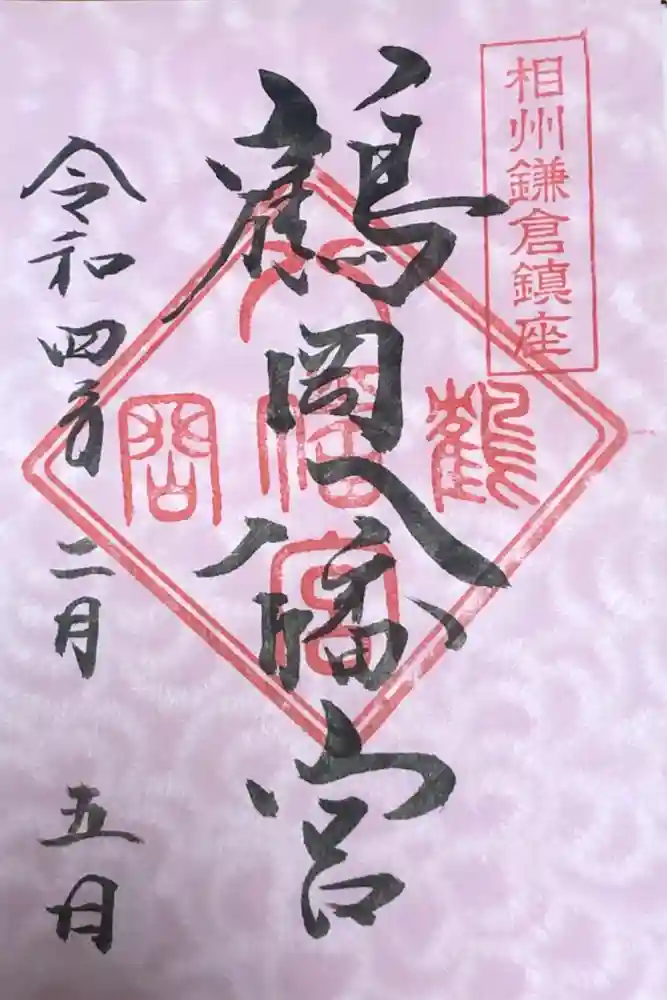 相州鎌倉鎮座
鶴岡八幡宮
鶴
岡
八
幡
宮
令和四年二月五日